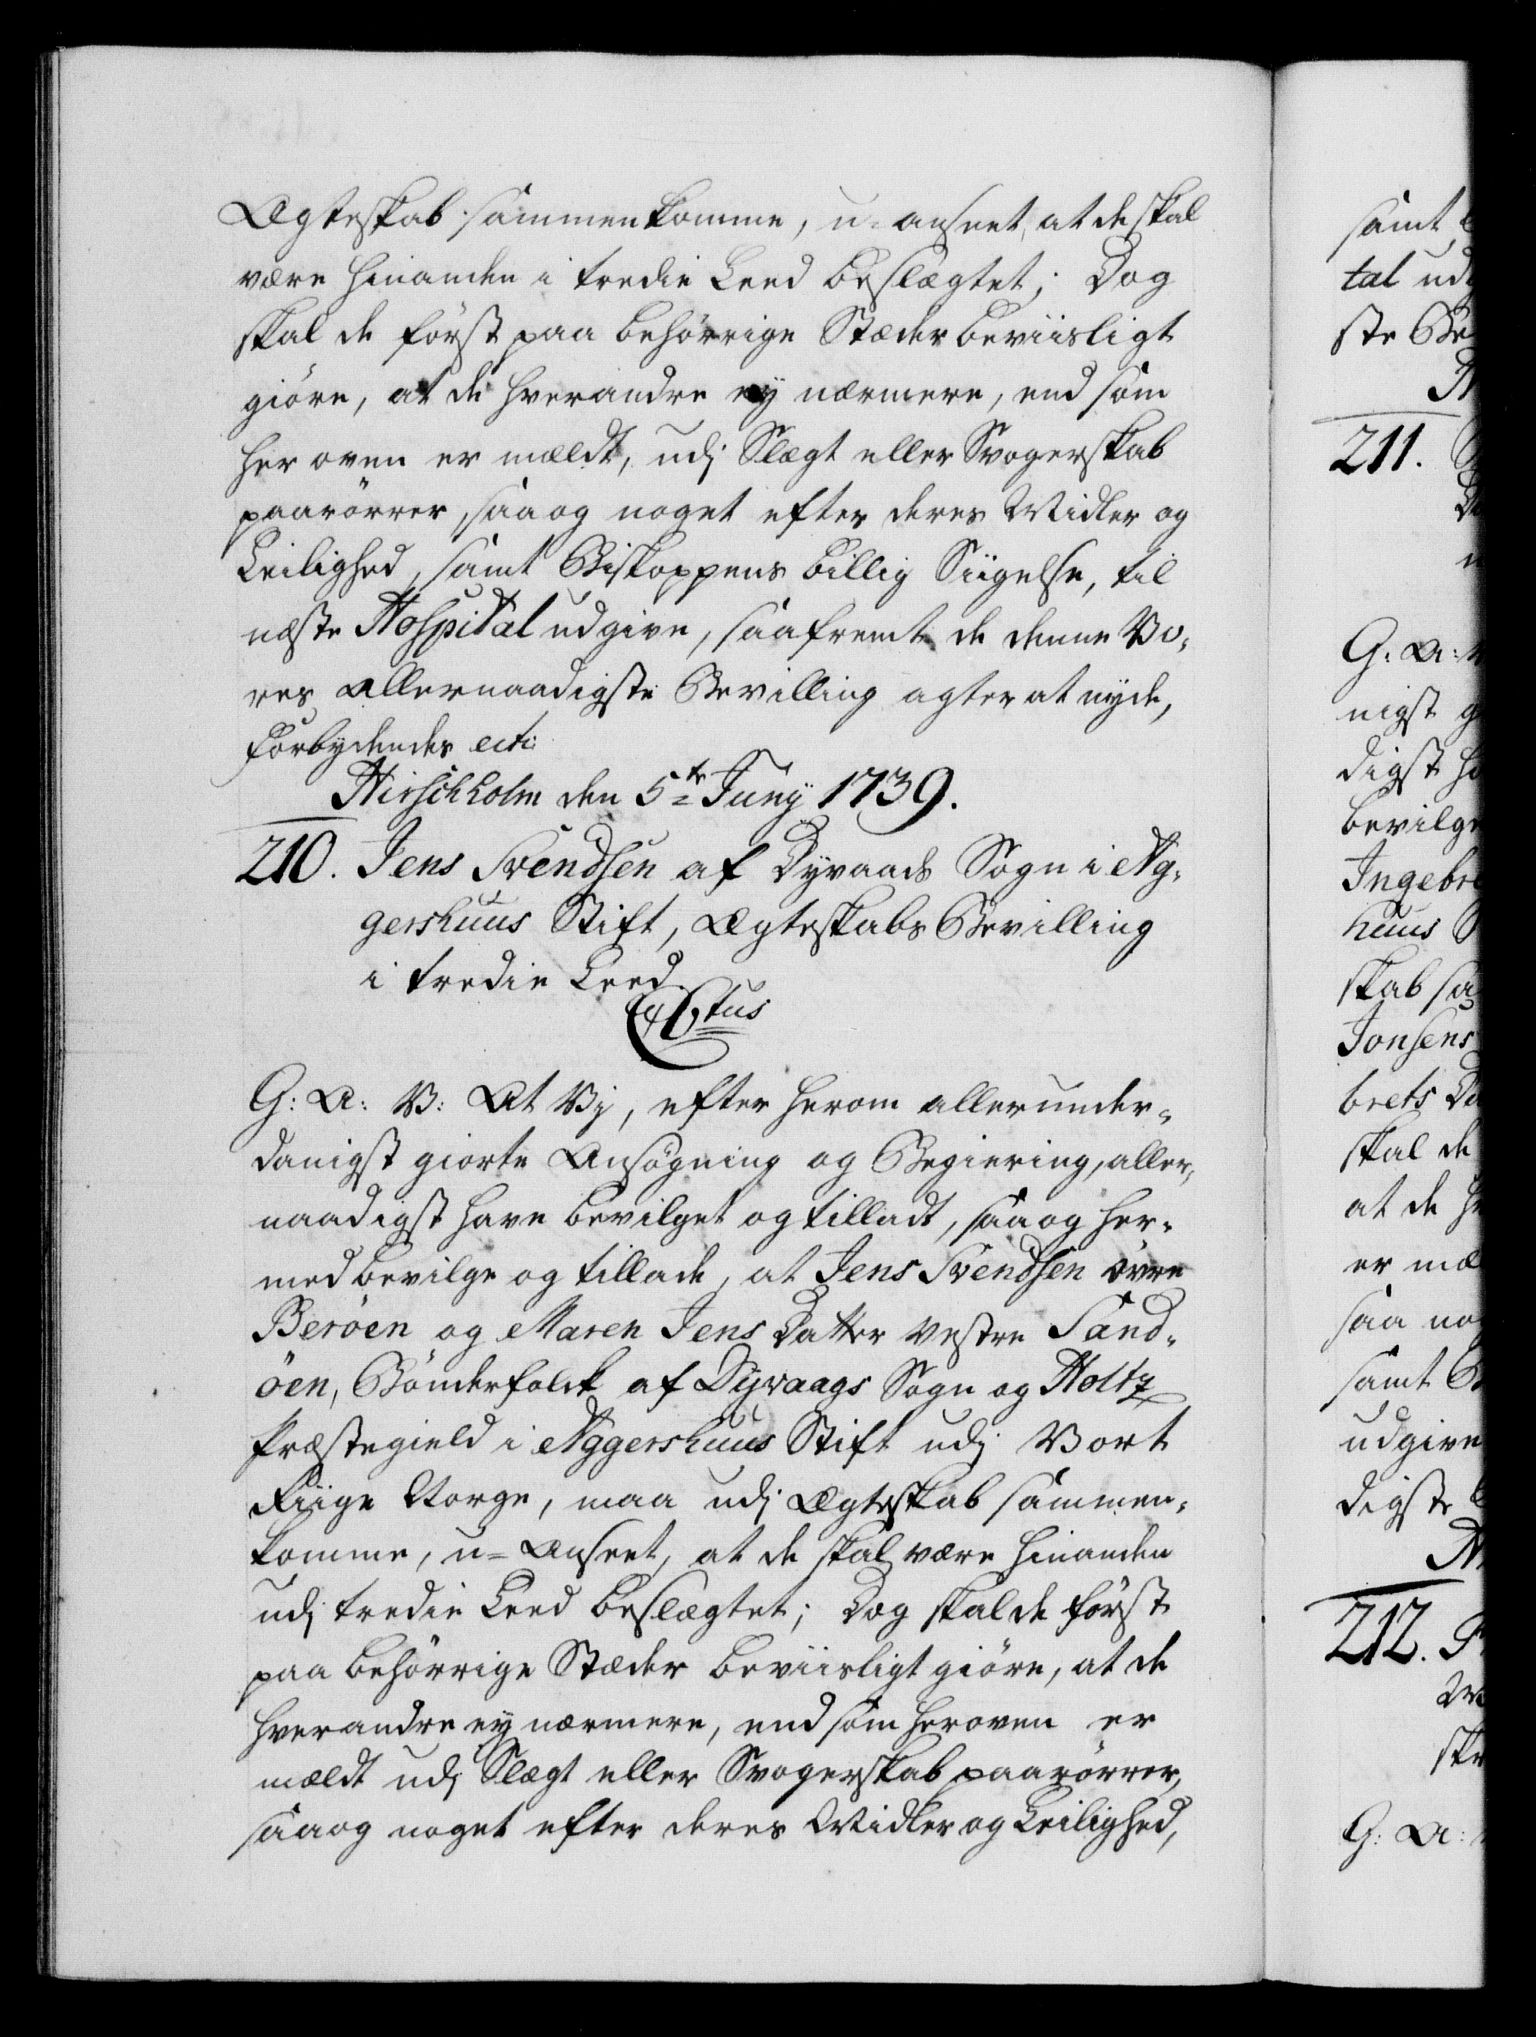 Ægteskab sammenkomme, u-anseet, at de skal
være hinanden i tredie Leed beslægtet; Dog
skal de först paa behörrige Stæder beviisligt
giöre, at de hverandre ey nærmere, end som
her oven er mældt, udj Slægt eller Svogerskab
paarörrer, saa og noget efter deres Midler og
Leilighed, samt Biskoppens billig Siigelse, til
næste Hospital udgive, saafremt de denne Vo-
res allernaadigste Bevilling agter at nyde,
Forbydendes ect:
Hirschholm den 5te Juny 1739.
210. Jens Svendsen af Dyvaads Sogn i Ag-
gershuus Stift, Ægteskabs Bevilling
i tredie Leed

G: A: V: At Vj, efter herom allerunder-
danigst giorte Ansøgning og Begiering, aller-
naadigst have bevilget og tilladt, saa og her-
med bevilge og tillade, at Jens Svendsen övre
Beröen og Maren Jens Datter Vestre Sand-
öen, Bönderfolck af Dyvaags Sogn og Holtz
Præstegield i Aggershuus Stift udj Vort
Riige Norge, maa udj Ægteskab sammen-
komme, u-Anseet, at de skal være hinanden
udj tredie Leed beslægtet; Dog skal de först
paa behörrige Stæder beviisligt giöre, at de
hverandre ey nærmere, end som heroven er
mældt udj Slægt eller Svogerskab paarörrer,
saa og noget efter deres Midler og Leilighed,
samt
tal
ste
211.
G: A:
nigst
digst
bevilge
huus
skab
Jonsens
brets
skal de
at de
er
saa
samt
udgive
digste
212.
G: A: